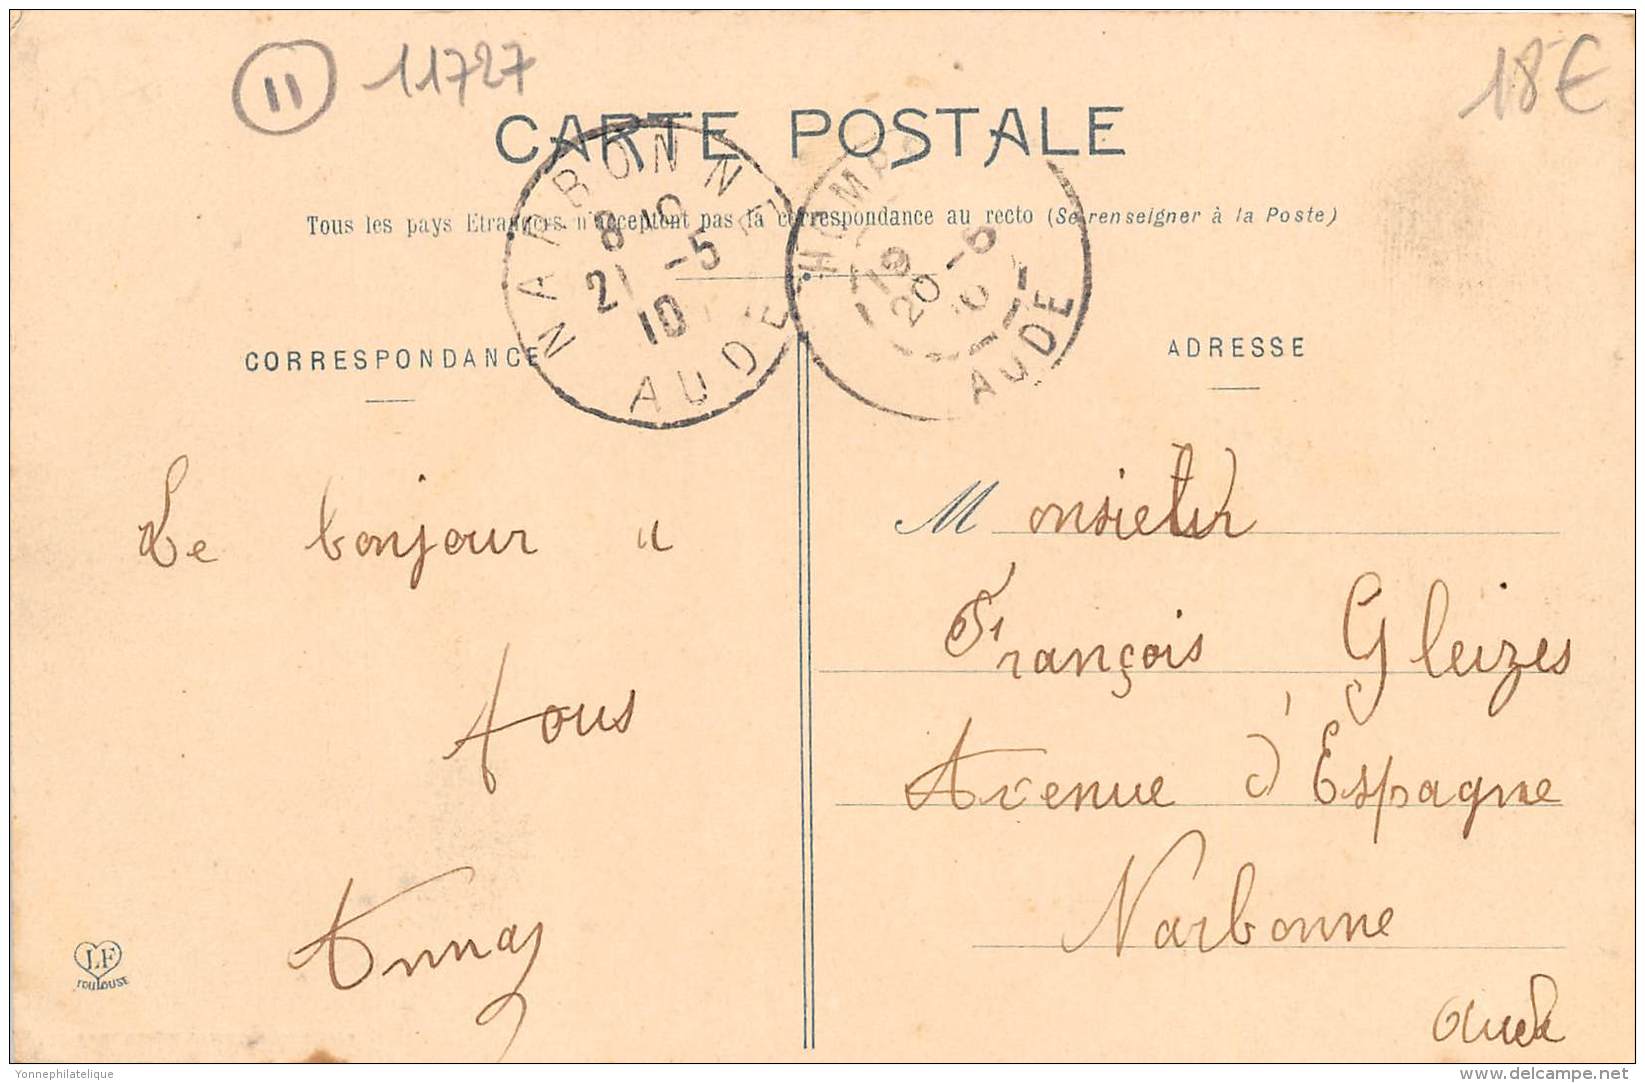 11 11727
18€
CARTE POSTALE
Tous les pays Etrangers n'acceptent pas la correspondance au recto (Se renseigner à la Poste)
NARBONNE
8 10
21 -5
10
AUDE
HOMPS
19
20 -5
10
AUDE
CORRESPONDANCE
ADRESSE
Le bonjour a
tous
Anna
Monsieur
François Gleizes
Avenue d'Espagne
Narbonne
Aude
LF
TOULOUSE
Yonnephilatelique
www.delcampe.net